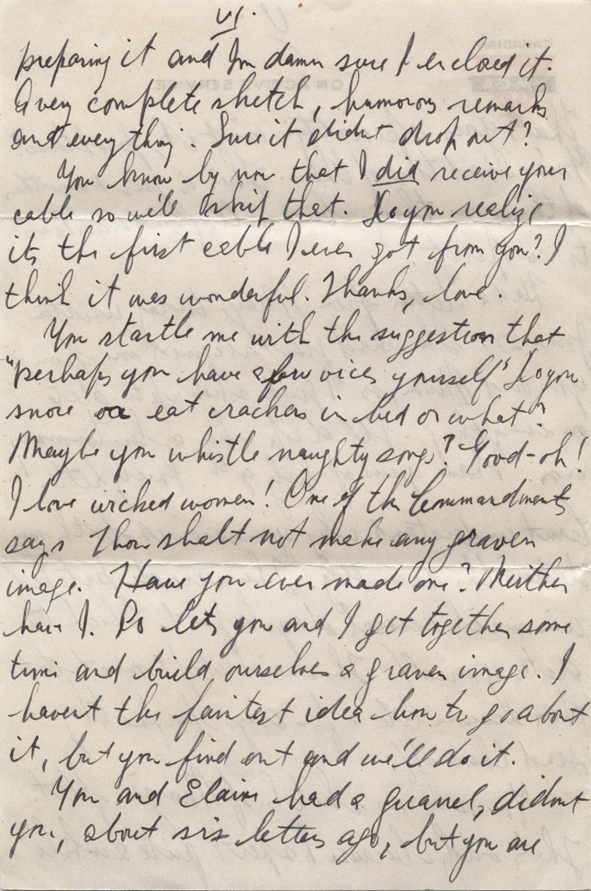 VI.
preparing it and I'm damn sure I enclosed it.
A very complete sketch, humorous remarks
and everything. Sure it didnt drop out?
You know by now that I did receive your
cable so we'll skip that. Do you realize
its the first cable I ever got from you? I
think it was wonderful. Thanks, love.
You startle me with the suggestion that
"perhaps you have a few vices yourself" Do you
snore or eat crackers in bed or what?
Maybe you whistle naughty songs? Good-oh!
I love wicked women! One of the Commandments
says Thou shalt not make any graven
image. Have you ever made one? Neither
have I. So lets you and I get together some
time and build ourselves a graven image. I
havent the faintest idea how to go about
it, but you find out and we'll do it.
You and Elaine had a quarrel, didnt
you, about six letters ago, but you are